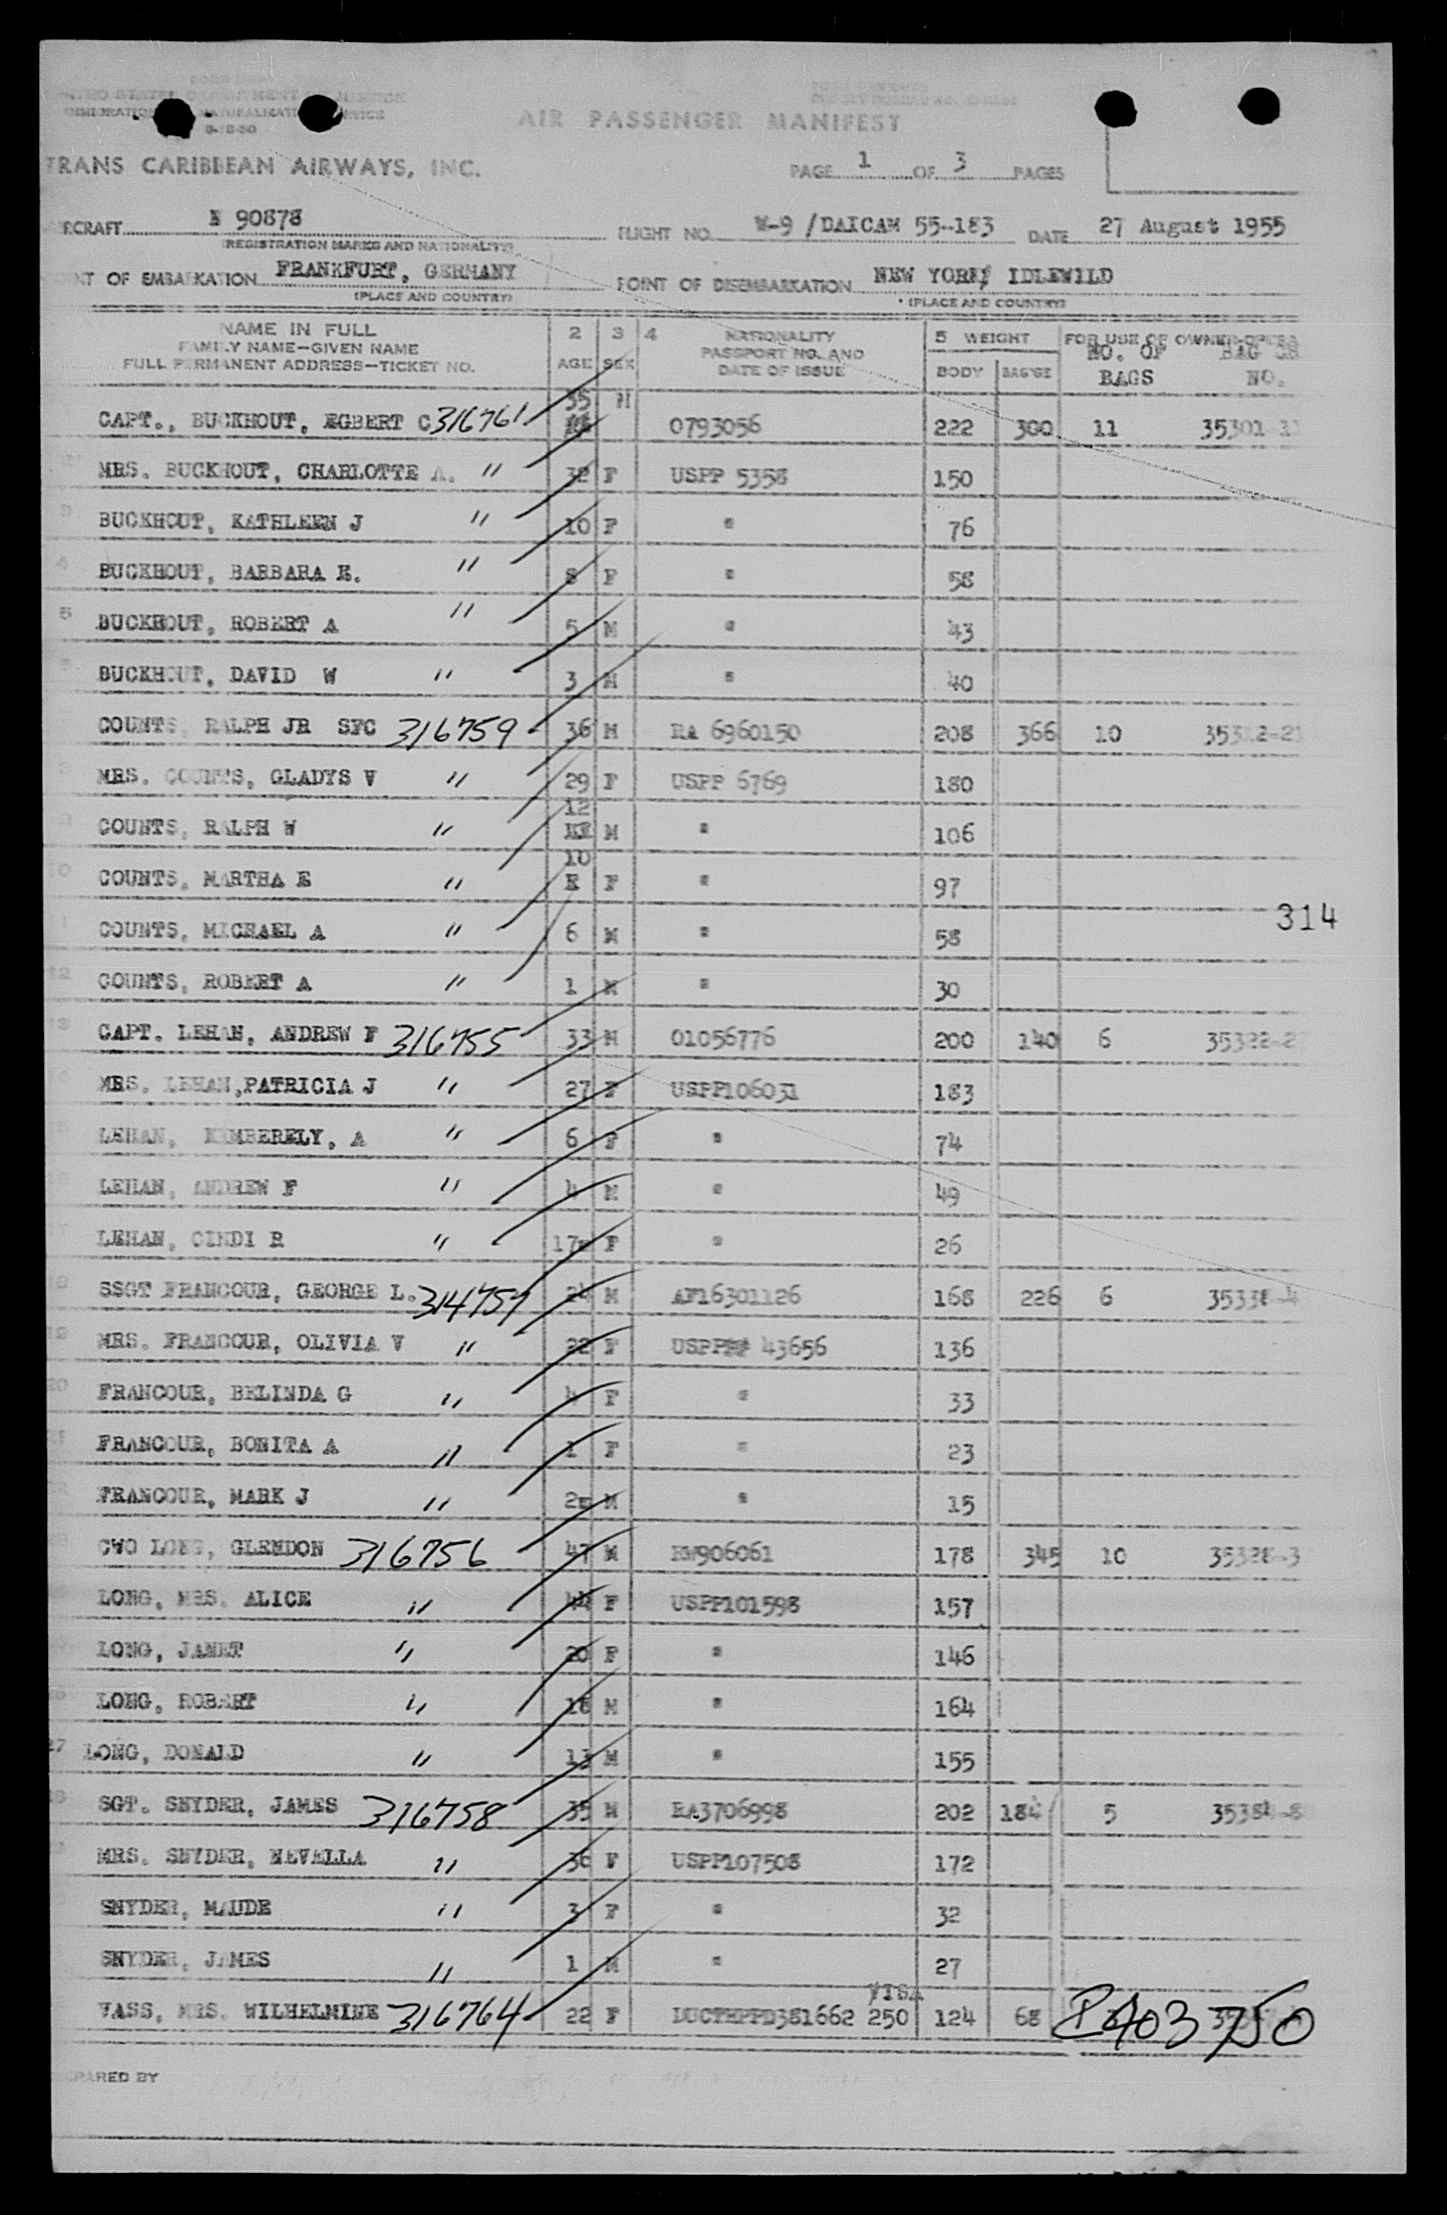 UNITED STATES DEPARTMENT OF JUSTICE
IMMIGRATION NATURALIZATION SERVICE
AIR PASSENGER MANIFEST
TRANS CARIBBEAN AIRWAYS, INC.
PAGE 1 OF 3 PAGES
AIRCRAFT N 90878 FLIGHT NO. W-9 /DAICAM 55-183 DATE 27 August 1955
(REGISTRATION MARKS AND NATIONALITY)
POINT OF EMBARKATION FRANKFURT, GERMANY POINT OF DISEMBARKATION NEW YORK, IDLEWILD
(PLACE AND COUNTRY) (PLACE AND COUNTRY)
NAME IN FULL 2 3 4 NATIONALITY 5 WEIGHT FOR USE OF OWNER-OPERA
FAMILY NAME—GIVEN NAME PASSPORT NO. AND NO. OF BAG
FULL PERMANENT ADDRESS—TICKET NO. AGE SEX DATE OF ISSUE BODY BAG'GE BAGS NO.
CAPT., BUCKHOUT, EGBERT C 316761 35 M 0793056 222 300 11 35301
MRS. BUCKHOUT, CHARLOTTE A. " 32 F USPP 5358 150
BUCKHOUT, KATHLEEN J " 10 F " 76
4 BUCKHOUT, BARBARA E. " 8 F " 58
5 BUCKHOUT, ROBERT A " 5 M " 43
BUCKHOUT, DAVID W " 3 M " 40
COUNTS, RALPH JR SFC 316759 36 M RA 6960150 208 366 10 35312-21
MRS. COUNTS, GLADYS V " 29 F USPP 6769 180
COUNTS, RALPH W " 12 M " 106
10 COUNTS, MARTHA E " 10 F " 97
314
COUNTS, MICHAEL A " 6 M " 58
12 COUNTS, ROBERT A " 1 M " 30
13 CAPT. LEHAN, ANDREW F 316755 33 M 01056776 200 140 6 35322-2
MRS. LEHAN, PATRICIA J " 27 F USPP106031 183
LEHAN, KIMBERELY, A " 6 F " 74
LEHAN, ANDREW F " 4 M " 49
LEHAN, CINDI R " 17m F " 26
SSGT FRANCOUR, GEORGE L. 314757 24 M AF16301126 168 226 6 35338-4
19 MRS. FRANCOUR, OLIVIA V " 22 F USPP 43656 136
20 FRANCOUR, BELINDA G " 4 F " 33
21 FRANCOUR, BONITA A " 1 F " 23
FRANCOUR, MARK J " 2m M " 15
CWO LONG, GLENDON 316756 47 M RW906061 178 345 10 35328-3
LONG, MRS. ALICE " 44 F USPP101598 157
LONG, JANET " 20 F " 146
LONG, ROBERT " 18 M " 164
27 LONG, DONALD " 13 M " 155
SGT. SNYDER, JAMES 316758 35 M RA3706998 202 184 5 35384-8
MRS. SNYDER, NEVELLA " 36 F USPP107508 172
SNYDER, MAUDE " 3 F " 32
SNYDER, JAMES " 1 M " 27
VISA
VASS, MRS. WILHELMINE 316764 22 F DUCTHPPD381662 250 124 68 P2403750
PREPARED BY